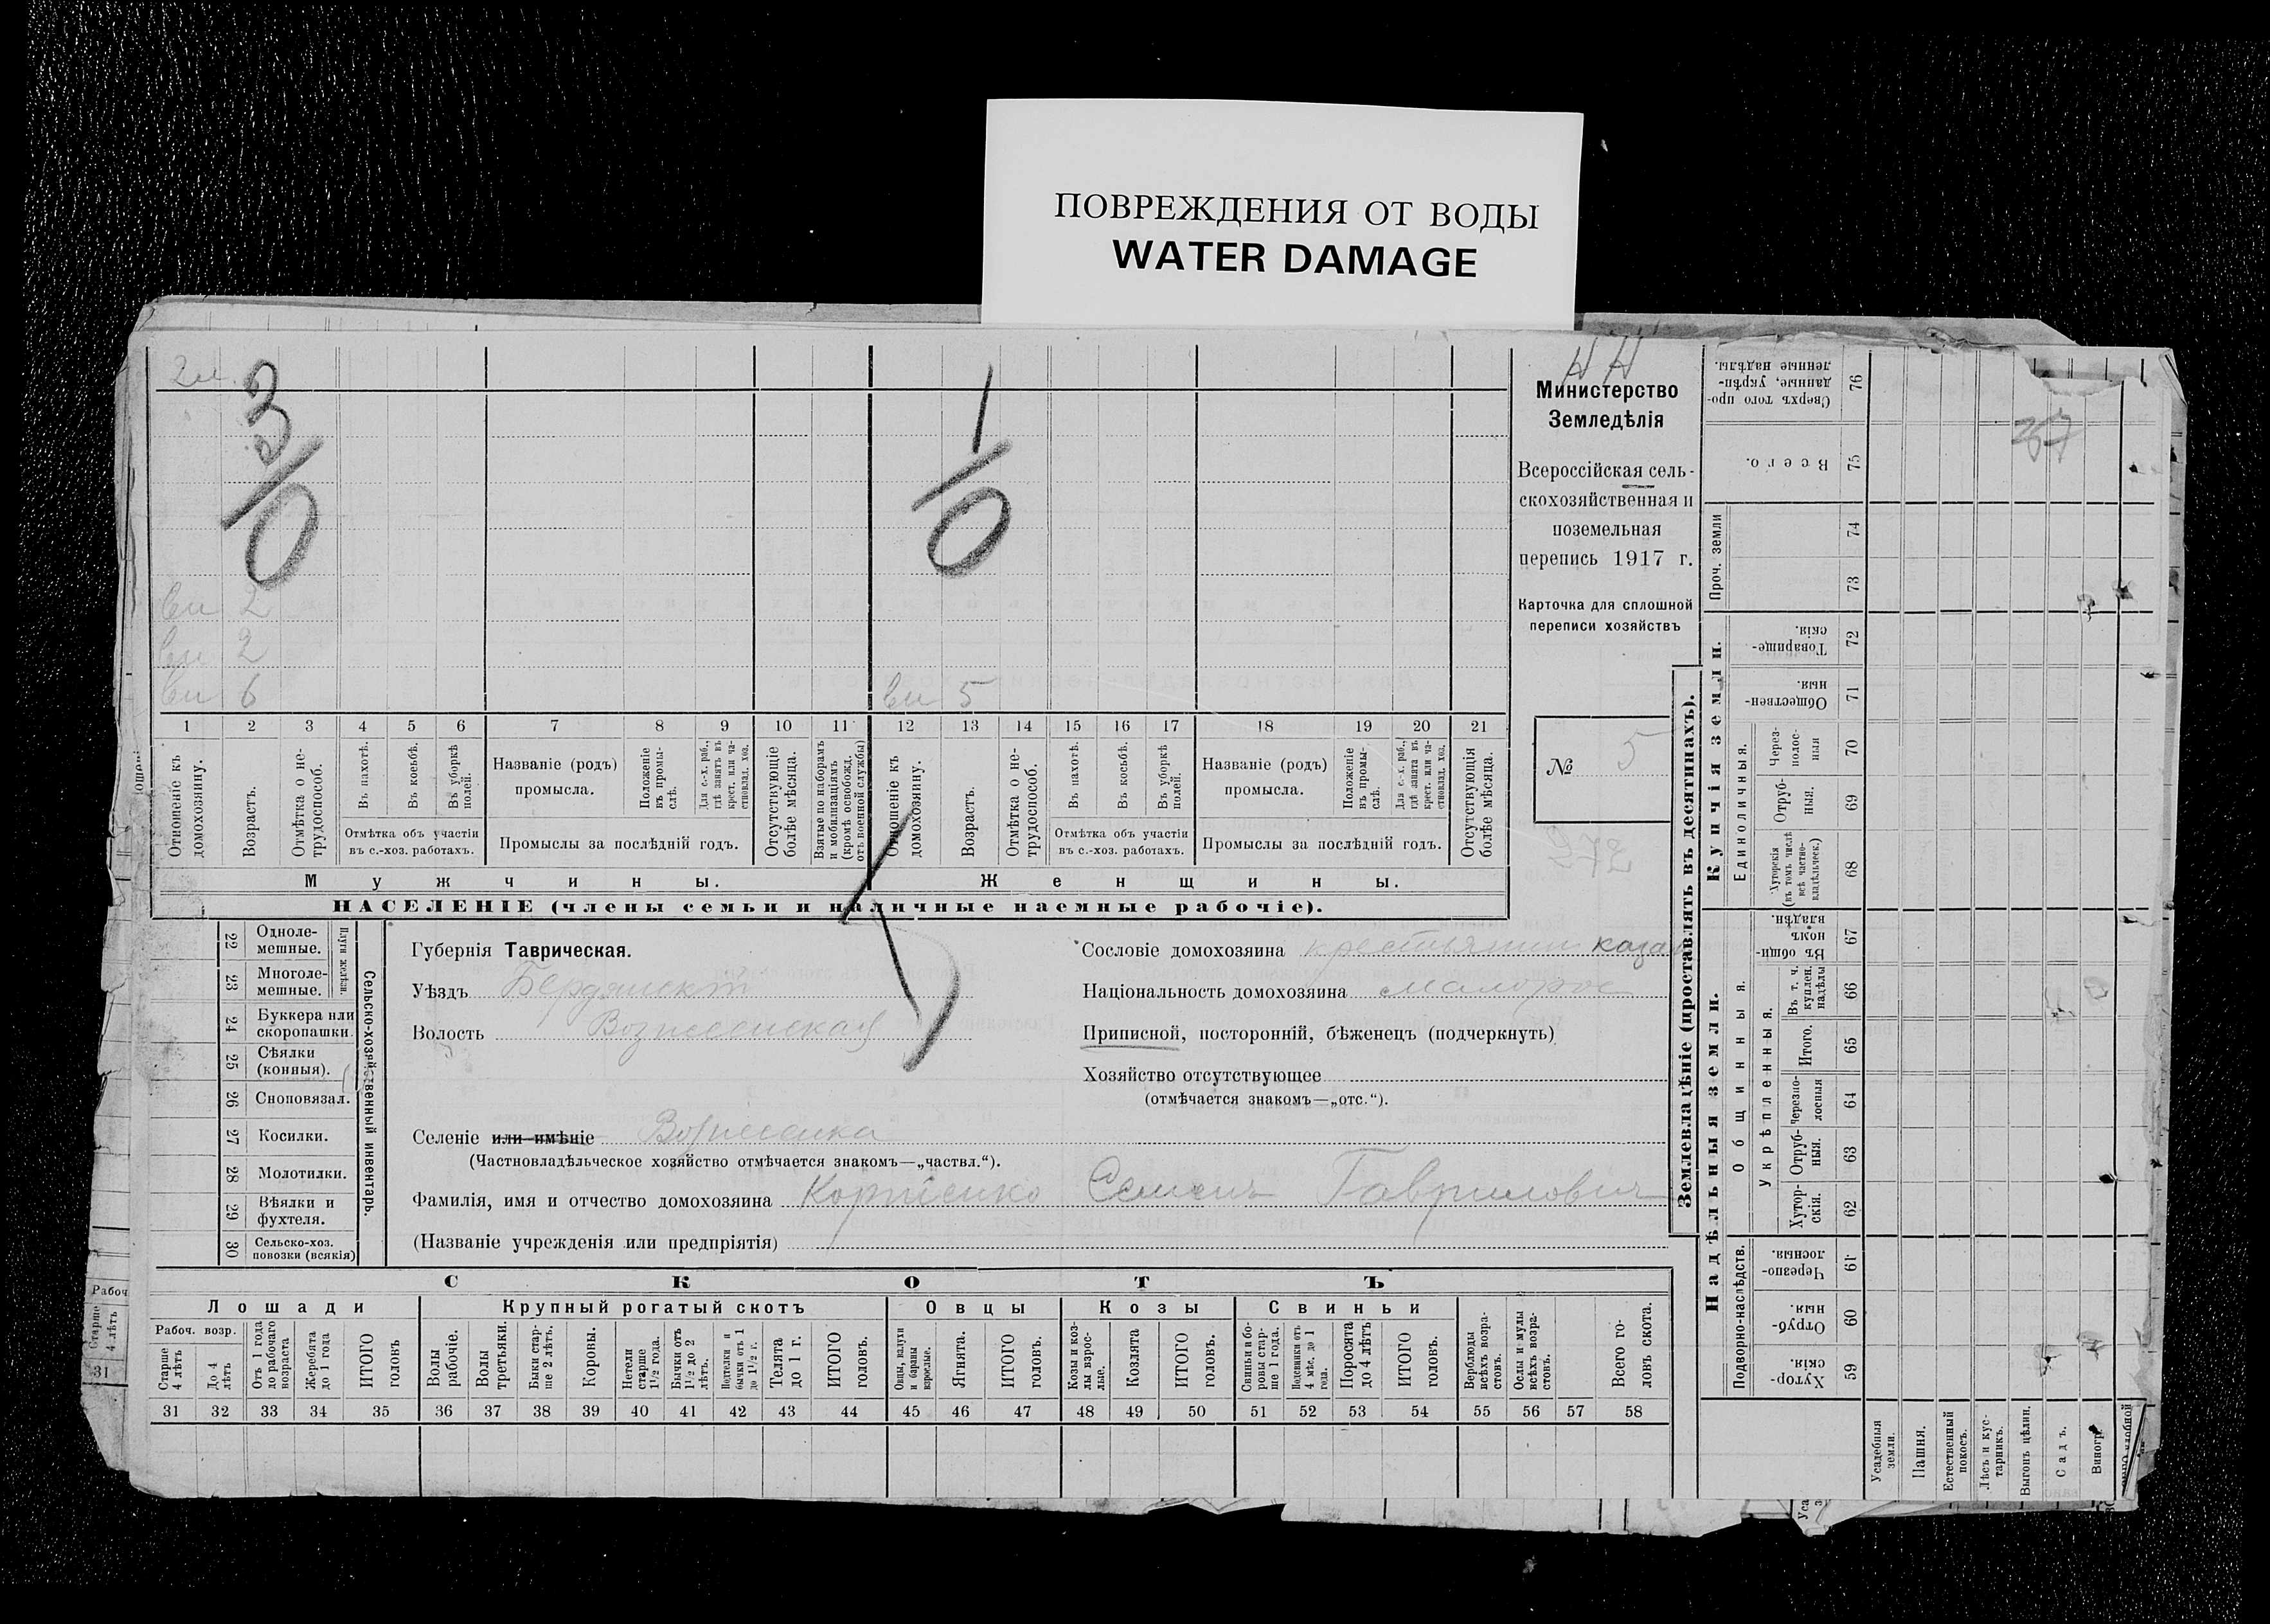 ПОВРЕЖДЕНИЯ ОТ ВОДЫ
WATER DAMAGE
3/0
1/0
2
2
6
5
1 2 3 4 5 6 7 8 9 10 11 12 13 14 15 16 17 18 19 20 21
Отношеніе къ домохозяину.
Возрастъ.
Отмѣтка о не-
трудоспособ.
Въ пахотѣ.
Въ косьбѣ.
Въ уборкѣ полей.
Отмѣтка объ участіи
въ с.-хоз. работахъ.
Названіе (родъ)
промысла.
Положеніе въ промы-
слѣ.
Для с.-х. раб., гдѣ занятъ въ крест. или ча-
стновлад. хоз.
Промыслы за послѣдній годъ.
Отсутствующіе болѣе мѣсяца.
Взятые по наборамъ и мобилизаціямъ (кромѣ освобожд. отъ военной службы)
Отношеніе къ домохозяину.
Возрастъ.
Отмѣтка о не-
трудоспособ.
Въ пахотѣ.
Въ косьбѣ.
Въ уборкѣ полей.
Отмѣтка объ участіи
въ с.-хоз. работахъ.
Названіе (родъ)
промысла.
Положеніе въ промы-
слѣ.
Для с.-х. раб., гдѣ занята въ крест. или ча-
стновлад. хоз.
Промыслы за послѣдній годъ.
Отсутствующія болѣе мѣсяца.
Мужчины.
Женщины.
НАСЕЛЕНІЕ (члены семьи и наличные наемные рабочіе).
Министерство
Земледѣлія
Всероссійская сель-
скохозяйственная и
поземельная
перепись 1917 г.
Карточка для сплошной
переписи хозяйствъ
№ 5
272
22 Одноле-
мешные.
23 Многоле-
мешные.
Плуги желѣзн.
24 Буккера или
скоропашки.
25 Сѣялки
(конныя).
26 Сноповязал.
27 Косилки.
28 Молотилки.
29 Вѣялки и
фухтеля.
30 Сельско-хоз.
повозки (всякія)
Сельско-хозяйственный инвентарь.
Губернія Таврическая.
Уѣздъ Бердянскій
Волость Вознесенская
Селеніе или имѣніе Вознесенка
(Частновладѣльческое хозяйство отмѣчается знакомъ—„частвл.“).
Фамилія, имя и отчество домохозяина Корніенко Семенъ Гавриловичъ
(Названіе учрежденія или предпріятія)
Сословіе домохозяина крестьянинъ
Національность домохозяина малорос
Приписной, посторонній, бѣженецъ (подчеркнуть)
Хозяйство отсутствующее
(отмѣчается знакомъ—„отс.“).
СКОТЪ
Лошади
Крупный рогатый скотъ
Овцы
Козы
Свиньи
Рабоч. возр.
Старше 4 лѣтъ
До 4 лѣтъ
Отъ 1 года до рабочаго возраста
Жеребята до 1 года
ИТОГО головъ
Волы рабочіе.
Волы третьяки.
Быки стар-
ше 2 лѣтъ.
Коровы.
Нетели старше 1½ года.
Бычки отъ 1½ до 2 лѣтъ.
Подтелки и бычки отъ 1 до 1½ г.
Телята до 1 г.
ИТОГО головъ.
Овцы, валухи и бараны взрослые.
Ягнята.
ИТОГО головъ.
Козы и коз-
лы взрос-
лые.
Козлята
ИТОГО головъ.
Свиньи и бо-
ровы стар-
ше 1 года.
Подсвинки отъ 4 мѣс. до 1 года.
Поросята до 4 лѣтъ
ИТОГО головъ.
Верблюды всѣхъ возра-
стовъ.
Ослы и мулы всѣхъ возра-
стовъ.
Всего го-
ловъ скота.
31 32 33 34 35 36 37 38 39 40 41 42 43 44 45 46 47 48 49 50 51 52 53 54 55 56 57 58
Рабоч
Старше 4 лѣтъ
31
Землевладѣніе (проставлять въ десятинахъ).
Сверхъ того про-
данные, укрѣп-
ленные надѣлы. 76
Всего. 75
Проч. земли
74
73
Купчія земли.
Товарище-
скія. 72
Обществен-
ныя. 71
Единоличныя.
Через-
полос-
ныя 70
Отруб-
ныя. 69
Хуторскія
(въ томъ числѣ всѣ частно-
владѣльческ.) 68
Надѣльныя земли.
Общинныя.
Въ общи-
номъ
владѣн. 67
Укрѣпленныя.
Въ т. ч.
куплен.
надѣлы 66
Итого. 65
Черезпо-
лосныя 64
Отруб-
ныя. 63
Хутор-
скія. 62
Подворно-наслѣдств.
Черезпо-
лосныя. 61
Отруб-
ныя. 60
Хутор-
скія. 59
37
Усадебныя земли.
Пашня.
Естественный покосъ.
Лѣсъ и кус-
тарникъ.
Выгонъ цѣлин.
Садъ.
Виногр.